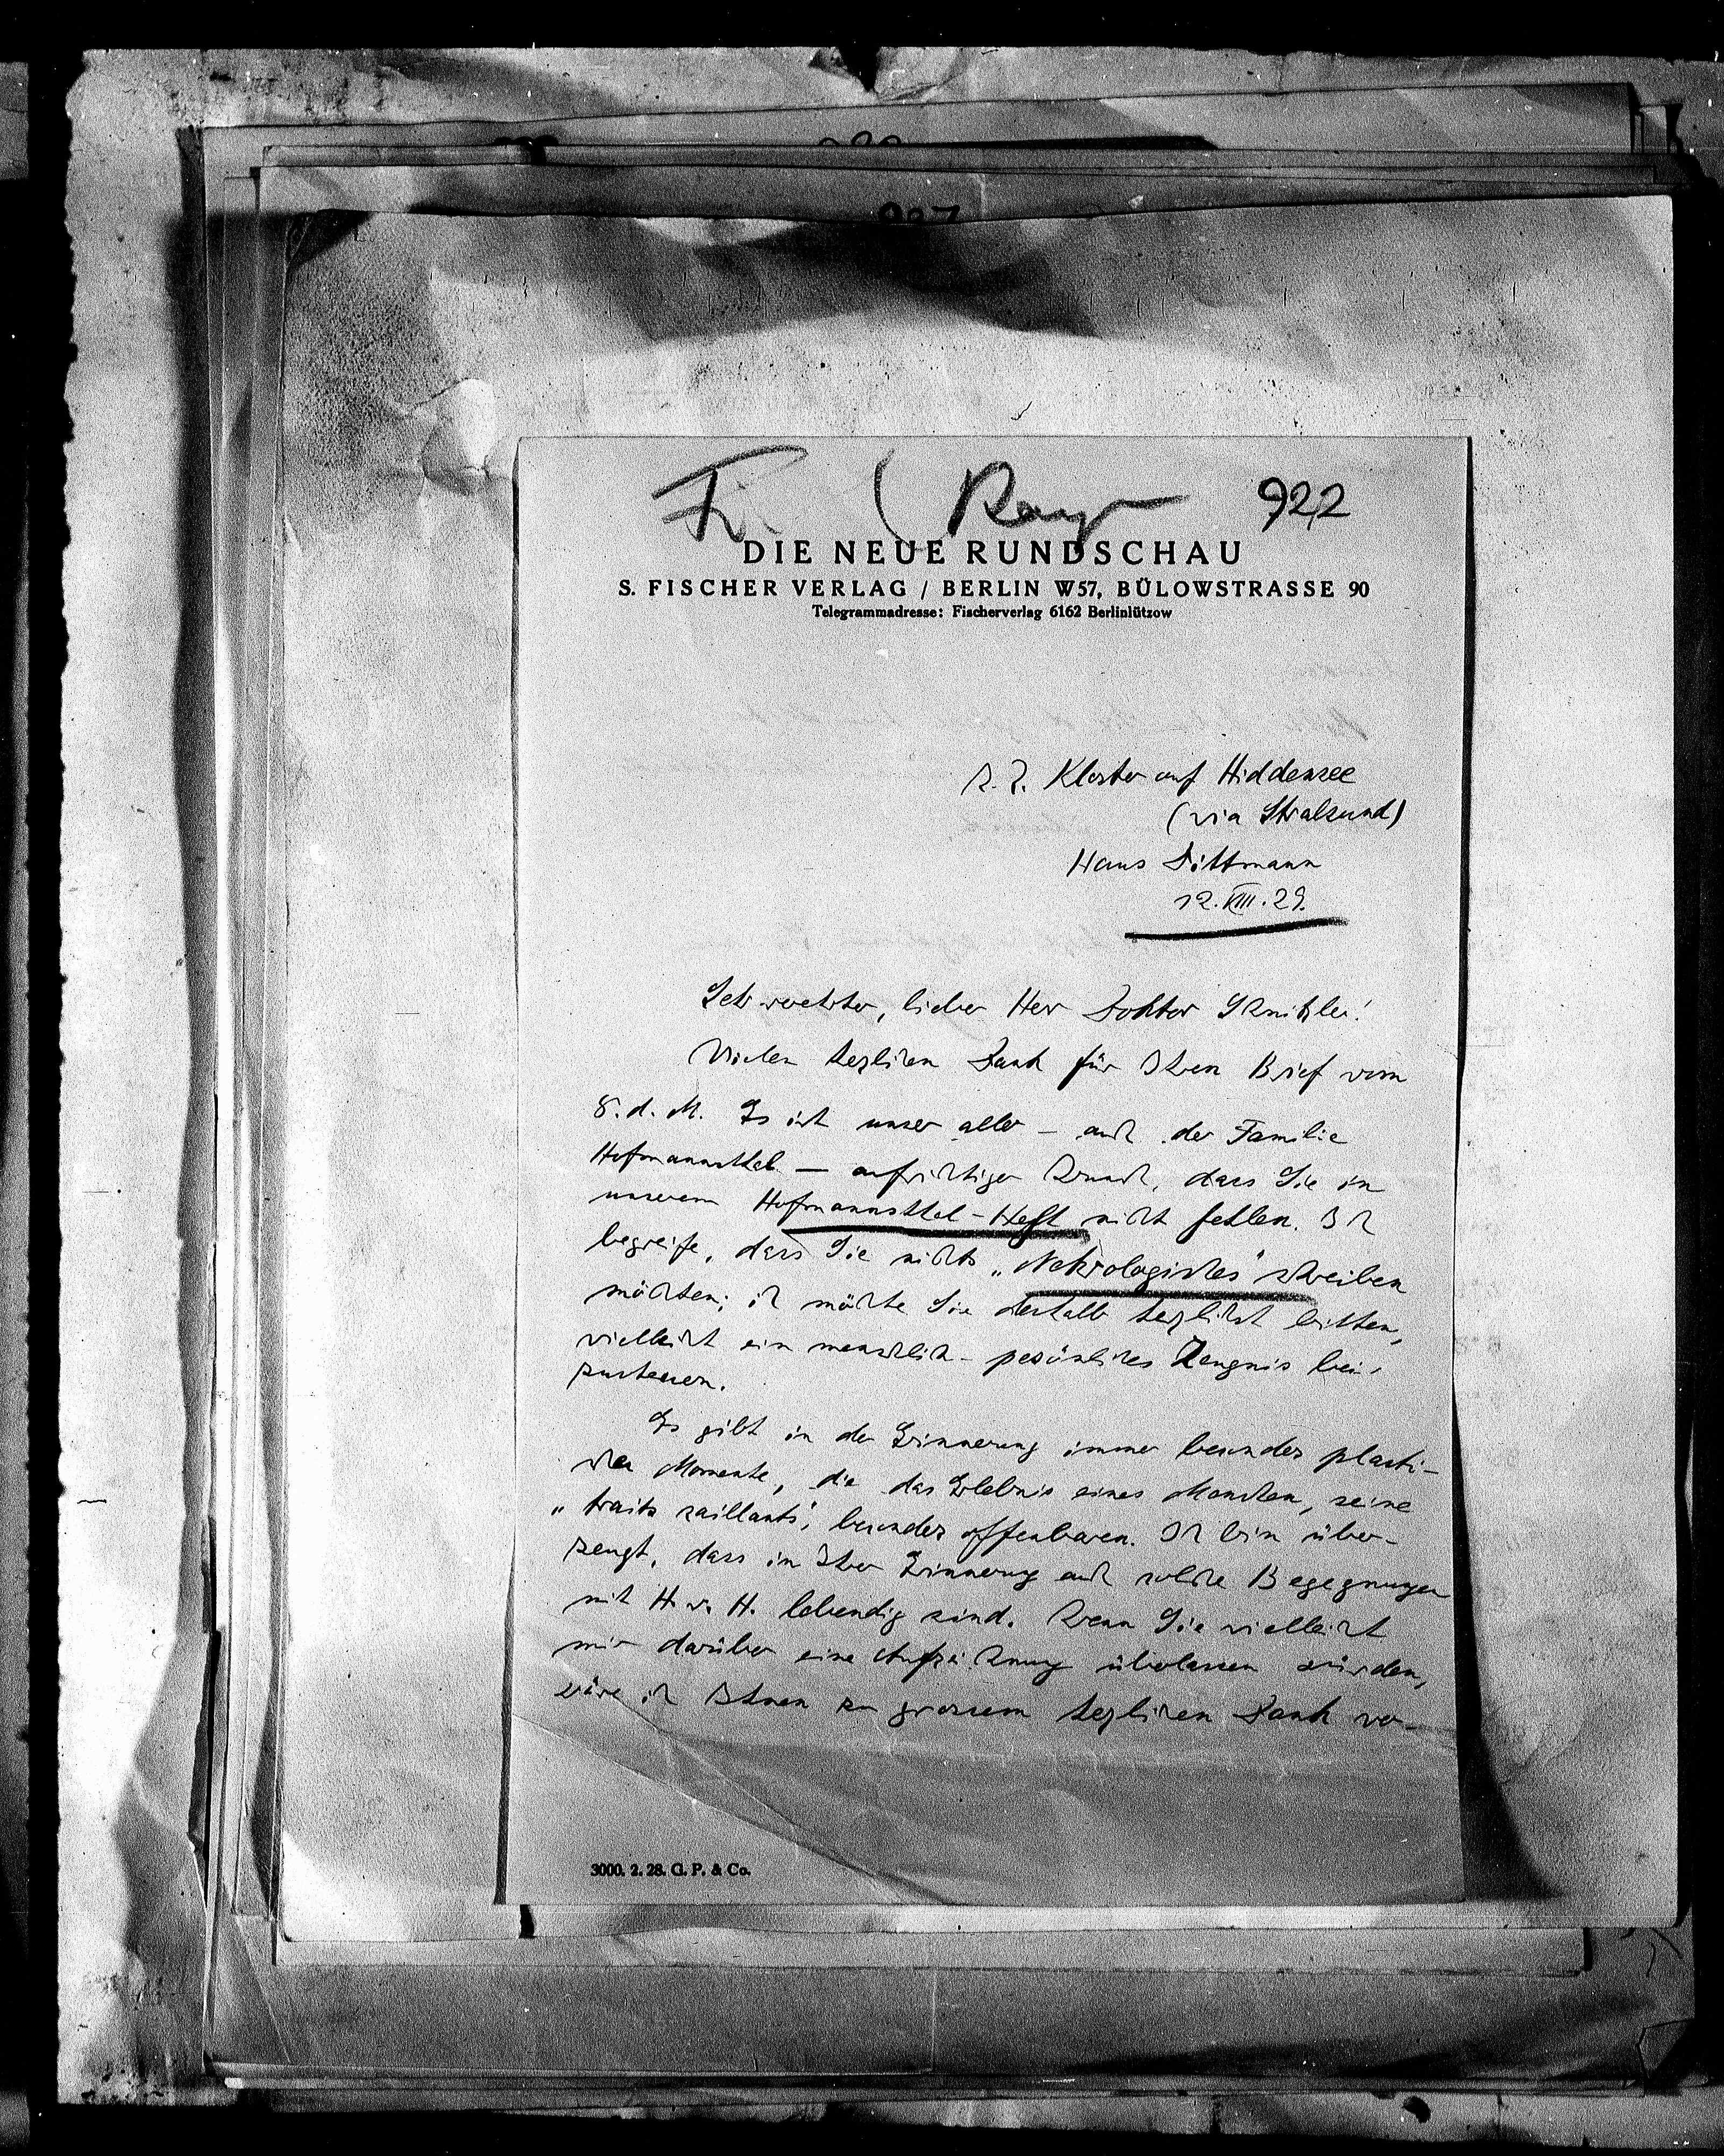 Fi. (Kayser
922
DIE NEUE RUNDSCHAU
S. FISCHER VERLAG / BERLIN W57, BÜLOWSTRASSE 90
Telegrammadresse: Fischerverlag 6162 Berlinlützow
z. Z. Kloster auf Hiddensee
(via Stralsund)
Haus Dittmann
12. VIII. 29.
Sehr verehrter, lieber Herr Doktor Schnitzler!
Vielen herzlichen Dank für Ihren Brief vom
8. d. M. Es ist unser aller – auch der Familie
Hofmannsthal – aufrichtiger Wunsch, dass Sie in
unserem Hofmannsthal-Heft nicht fehlen. Ich
begreife, dass Sie nichts „Nekrologisches" schreiben
möchten; ich möchte Sie deshalb herzlichst bitten,
vielleicht ein menschlich-persönliches Zeugnis bei-
zusteuern.
Es gibt in der Erinnerung immer besonders plasti-
sche Momente, die das Erlebnis eines Menschen, seine
„traits saillants", besonders offenbaren. Ich bin über-
zeugt, dass in Ihrer Erinnerung auch solche Begegnungen
mit H. v. H. lebendig sind. Wenn Sie vielleicht
mir darüber eine Aufzeichnung überlassen würden,
wäre ich Ihnen zu grossem herzlichen Dank ver-
3000. 2. 28. G. P. & Co.